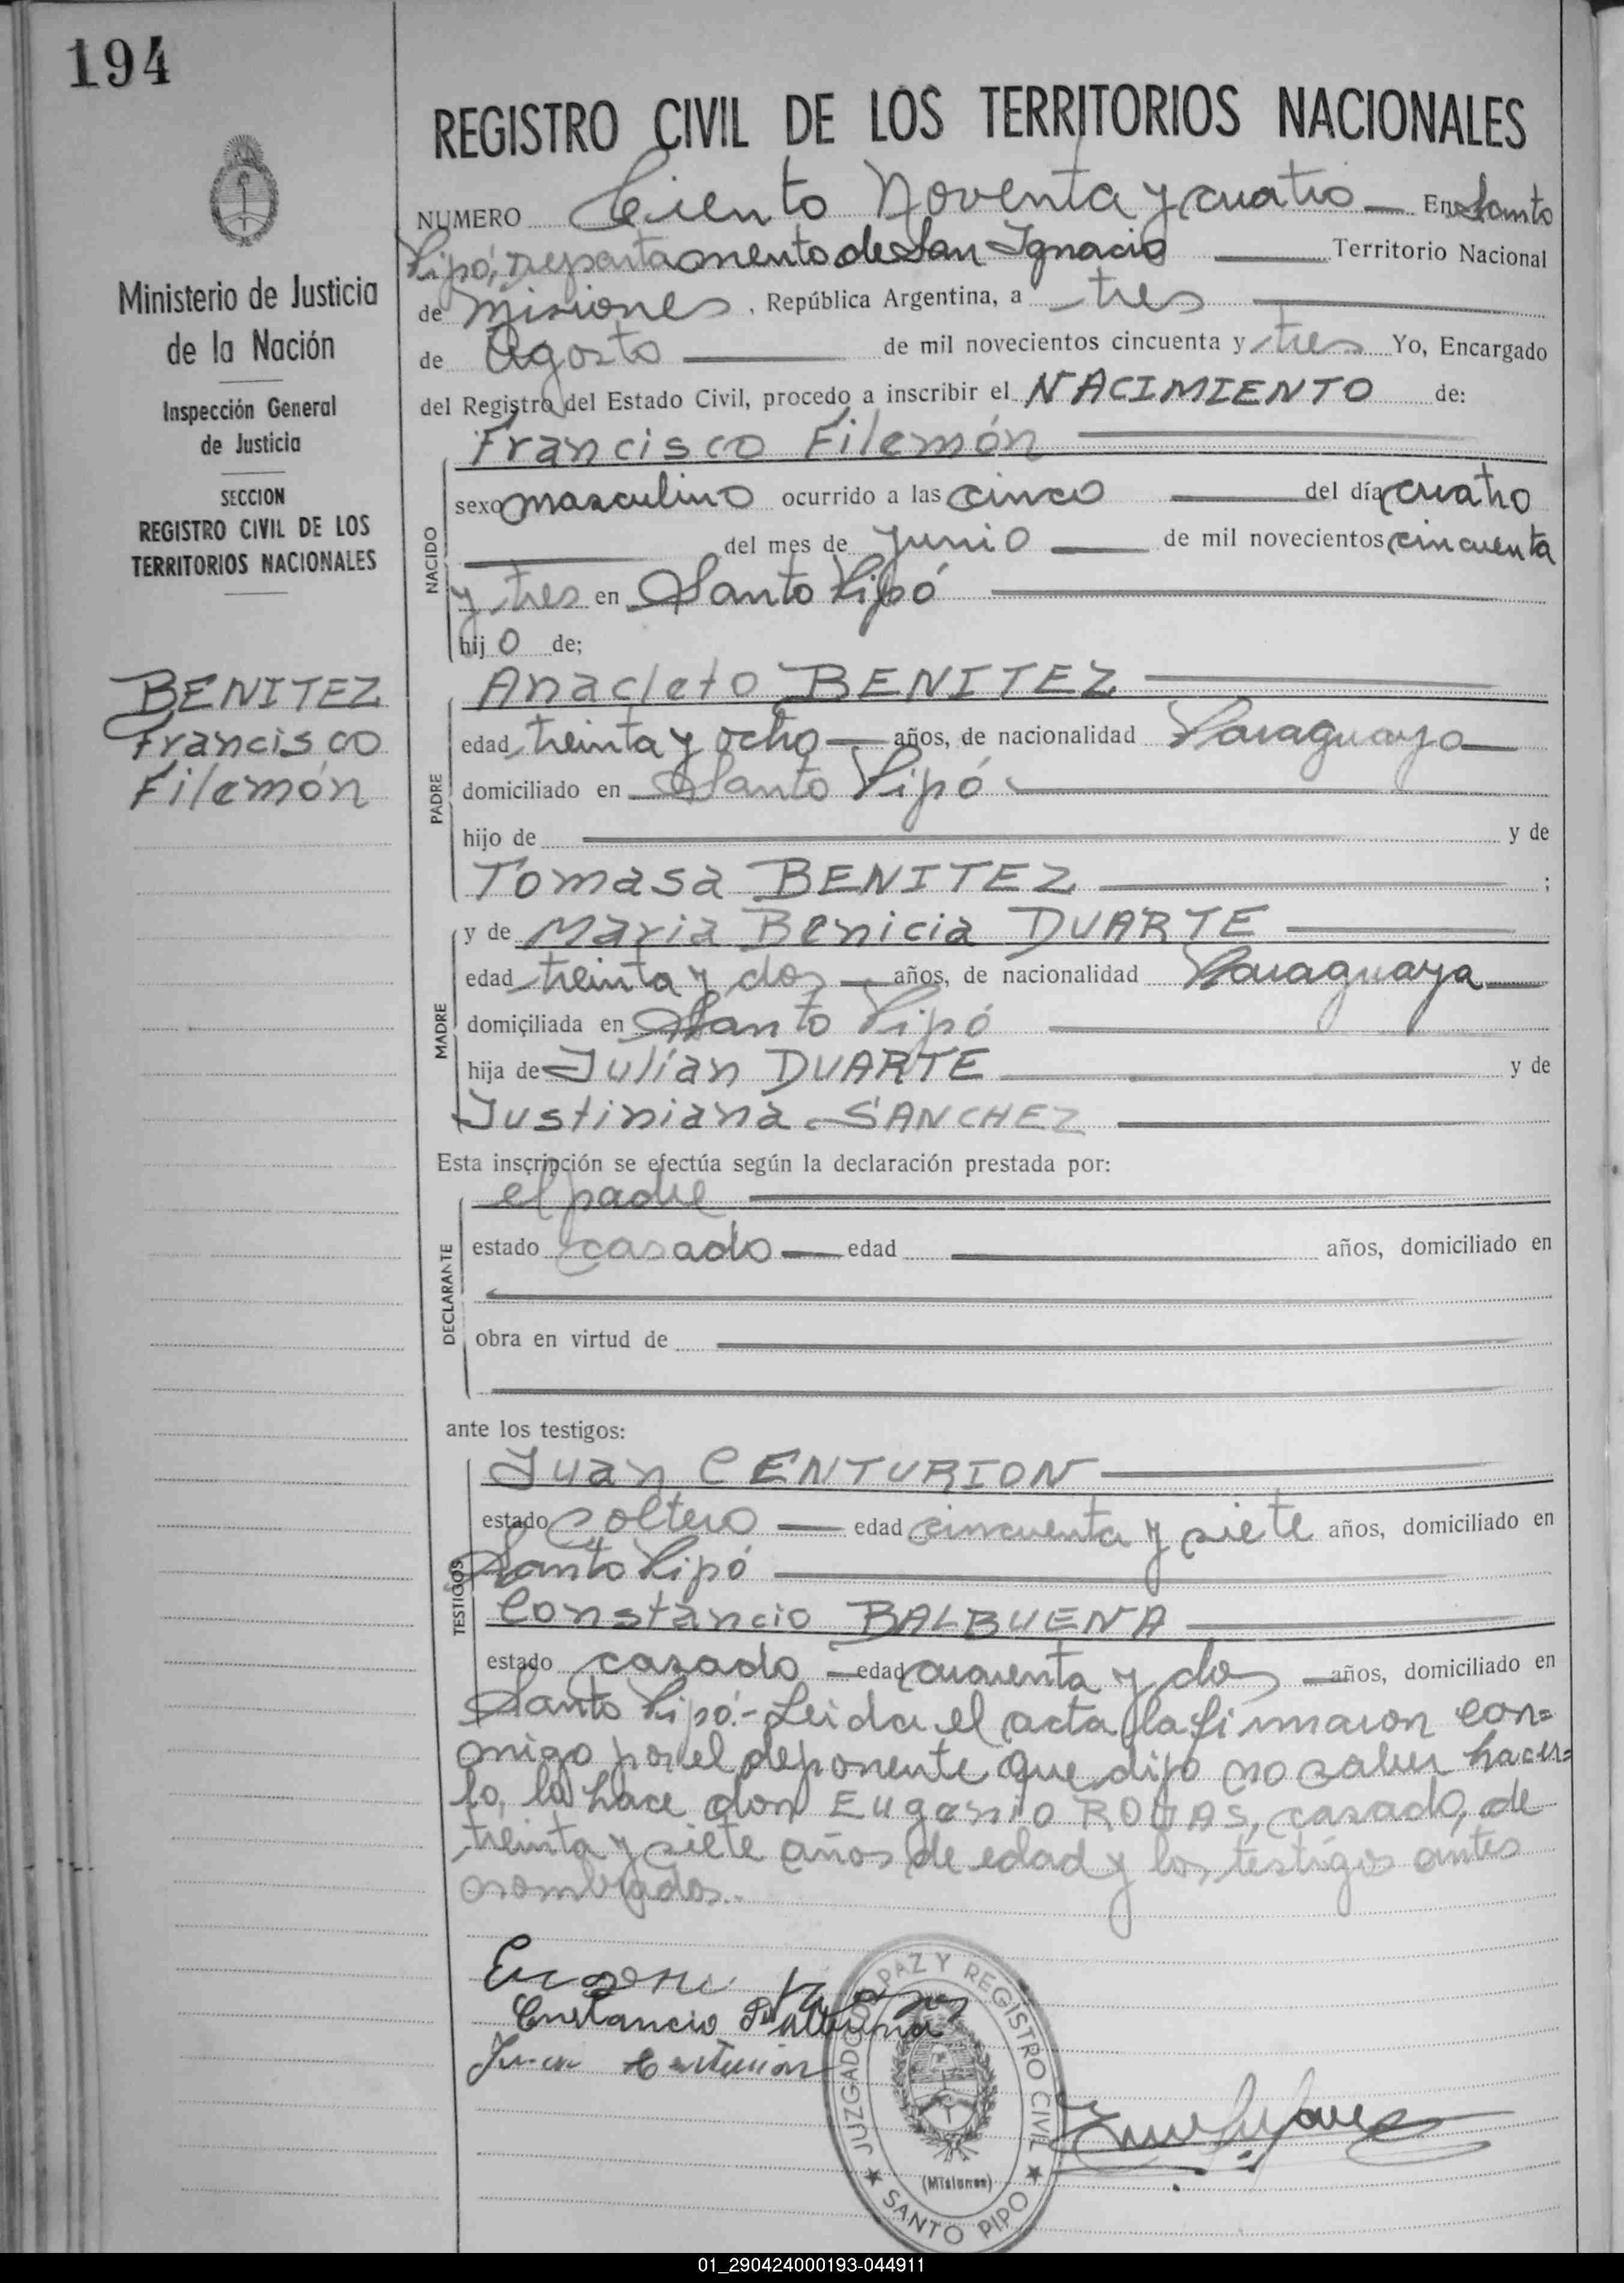 194
Ministerio de Justicia
de la Nación
Inspección General
de Justicia
SECCION
REGISTRO CIVIL DE LOS
TERRITORIOS NACIONALES
BENITEZ
Francisco
Filemón
REGISTRO CIVIL DE LOS TERRITORIOS NACIONALES
NUMERO Ciento Noventa y cuatro En Santo
Pipó, Departamento de San Ignacio Territorio Nacional
de Misiones, República Argentina, a tres
de Agosto de mil novecientos cincuenta y tres Yo, Encargado
del Registro del Estado Civil, procedo a inscribir el NACIMIENTO de:
Francisco Filemón
NACIDO
sexo masculino ocurrido a las cinco del día cuatro
del mes de junio de mil novecientos cincuenta
y tres en Santo Pipó
hijo de;
Anacleto BENITEZ
PADRE
edad treinta y ocho años, de nacionalidad Paraguaya
domiciliado en Santo Pipó
hijo de y de
Tomasa BENITEZ ;
MADRE
y de Maria Benicia DUARTE
edad treinta y dos años, de nacionalidad Paraguaya
domiciliada en Santo Pipó
hija de Julián DUARTE y de
Justiniana SANCHEZ
Esta inscripción se efectúa según la declaración prestada por:
DECLARANTE
el padre
estado casado edad años, domiciliado en
obra en virtud de
ante los testigos:
TESTIGOS
Juan CENTURION
estado soltero edad cincuenta y siete años, domiciliado en
Santo Pipó
Constancio BALBUENA
estado casado edad cuarenta y dos años, domiciliado en
Santo Pipó.- Leida el acta la firmaron con=
migo por el deponente que dijo no saber hacer=
lo, la hace don Eugenio ROJAS, casado, de
treinta y siete años de edad y los testigos antes
nombrados.-
Eugenio Rojas
Constancio Balbuena
Juan Centurion
JUZGADO DE PAZ Y REGISTRO CIVIL
(Misiones)
SANTO PIPO
01_290424000193-044911